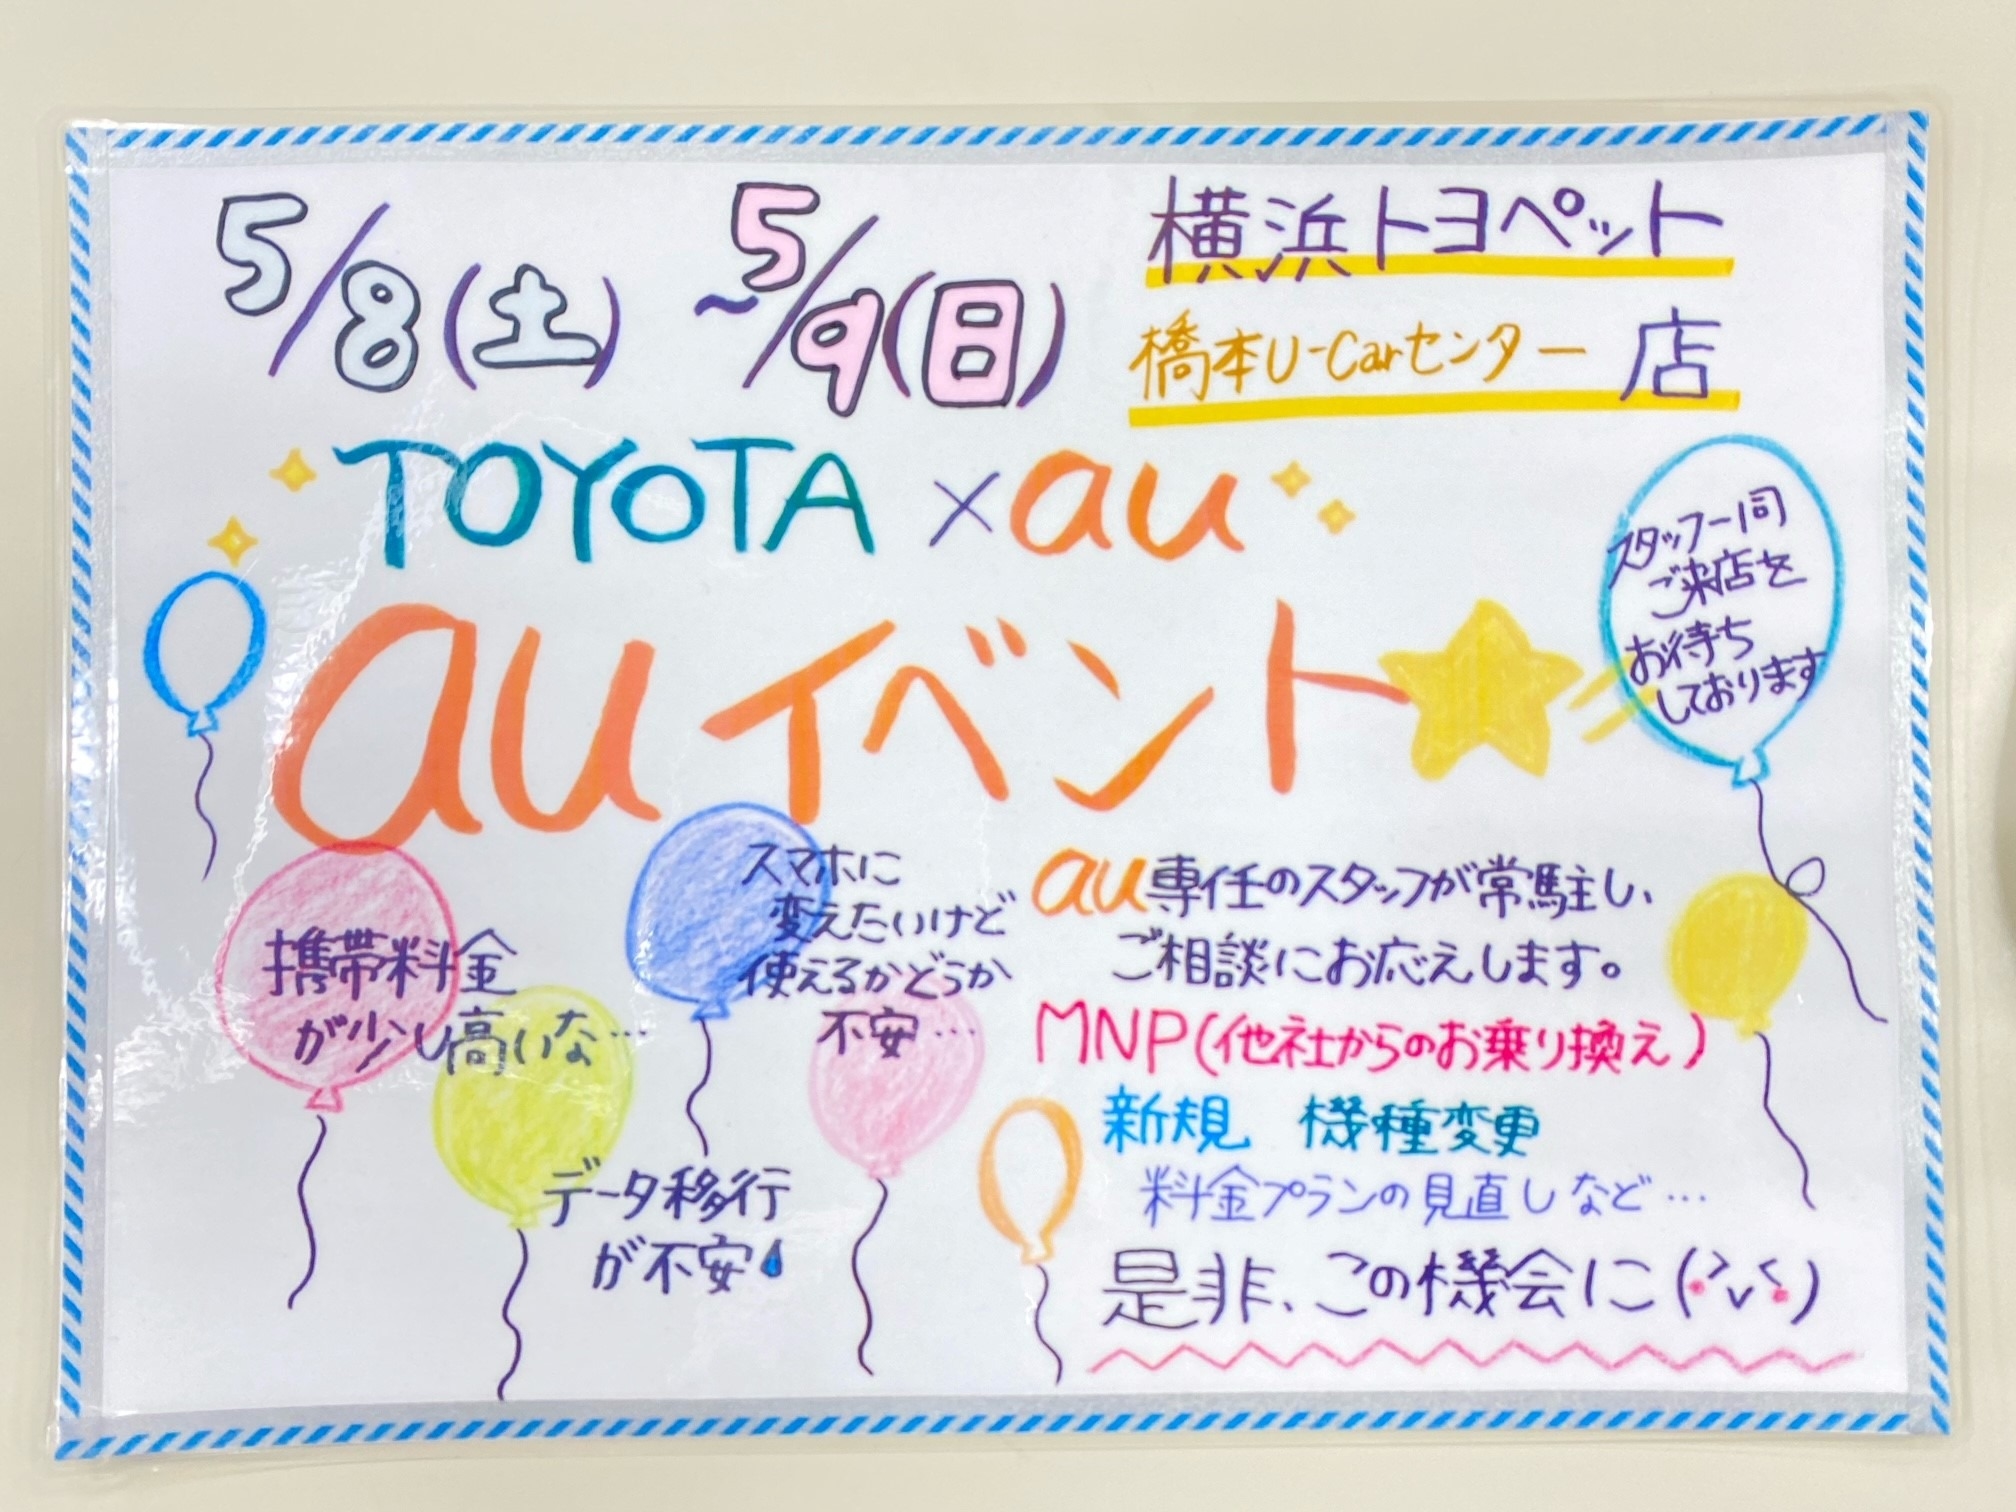 5/8(土) ~5/9(日)
横浜トヨペット
橋本U-Carセンター 店
TOYOTA × au
auイベント
スタッフ一同
ご来店を
お待ち
しております
携帯料金
が少し高いな…
スマホに
変えたいけど
使えるかどうか
不安…
データ移行
が不安
au専任のスタッフが常駐し、
ご相談にお応えします。
MNP(他社からのお乗り換え)
新規 機種変更
料金プランの見直しなど…
是非、この機会に(>v<)